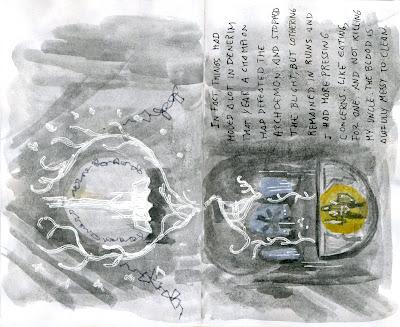 IN FACT THINGS HAD
MOVED A LOT IN DENERIM
THAT YEAR A CHAMPION
HAD DEFEATED THE
ARCHDEMON AND STOPPED
THE BLIGHT, BUT LOTHERING
REMAINED IN RUINS AND
I HAD MORE PRESSING
CONCERNS, LIKE EATING,
FOR ONE, AND NOT KILLING
MY UNCLE. THE BLOOD IS
AWFULLY MESSY TO CLEAN